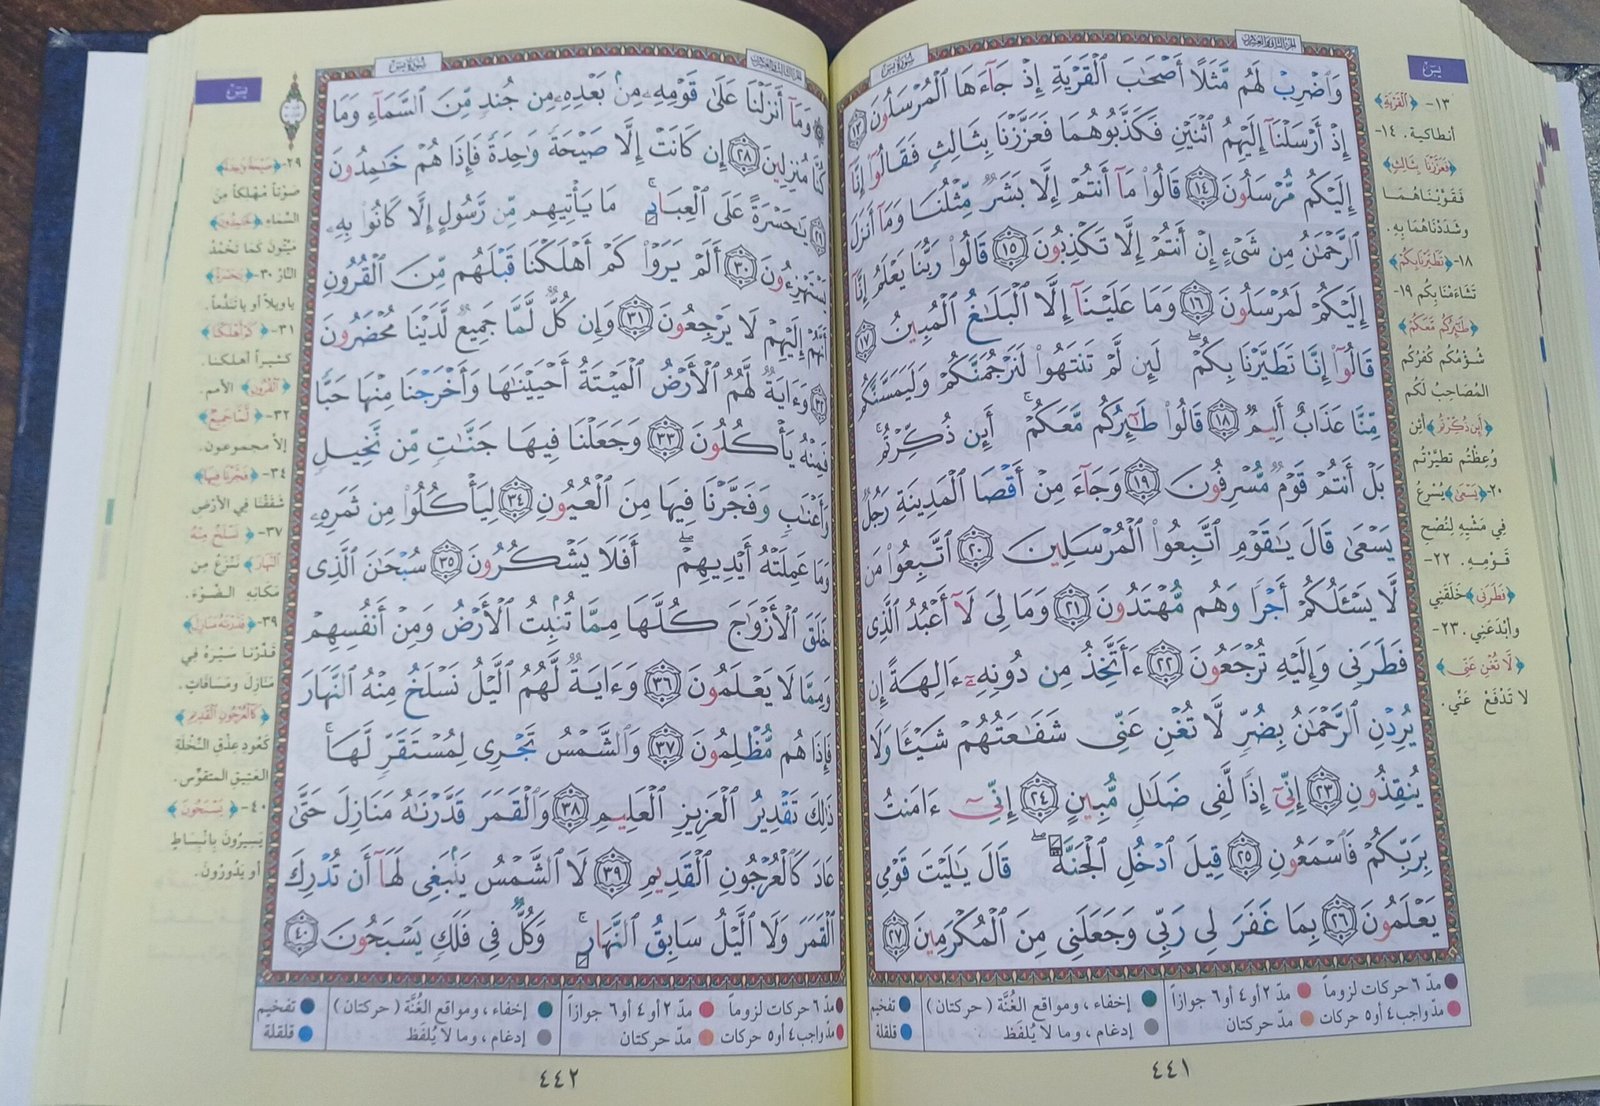 سُورَةُ يسٓ
يسٓ
وَٱضْرِبْ لَهُم مَّثَلًا أَصْحَٰبَ ٱلْقَرْيَةِ إِذْ جَآءَهَا ٱلْمُرْسَلُونَ ١٣
إِذْ أَرْسَلْنَآ إِلَيْهِمُ ٱثْنَيْنِ فَكَذَّبُوهُمَا فَعَزَّزْنَا بِثَالِثٍ فَقَالُوٓا۟ إِنَّآ
إِلَيْكُم مُّرْسَلُونَ ١٤ قَالُوا۟ مَآ أَنتُمْ إِلَّا بَشَرٌ مِّثْلُنَا وَمَآ أَنزَلَ
ٱلرَّحْمَٰنُ مِن شَىْءٍ إِنْ أَنتُمْ إِلَّا تَكْذِبُونَ ١٥ قَالُوا۟ رَبُّنَا يَعْلَمُ إِنَّآ
إِلَيْكُمْ لَمُرْسَلُونَ ١٦ وَمَا عَلَيْنَآ إِلَّا ٱلْبَلَٰغُ ٱلْمُبِينُ ١٧
قَالُوٓا۟ إِنَّا تَطَيَّرْنَا بِكُمْ ۖ لَئِن لَّمْ تَنتَهُوا۟ لَنَرْجُمَنَّكُمْ وَلَيَمَسَّنَّكُم
مِّنَّا عَذَابٌ أَلِيمٌ ١٨ قَالُوا۟ طَٰٓئِرُكُم مَّعَكُمْ ۚ أَئِن ذُكِّرْتُم ۚ
بَلْ أَنتُمْ قَوْمٌ مُّسْرِفُونَ ١٩ وَجَآءَ مِنْ أَقْصَا ٱلْمَدِينَةِ رَجُلٌ
يَسْعَىٰ قَالَ يَٰقَوْمِ ٱتَّبِعُوا۟ ٱلْمُرْسَلِينَ ٢٠ ٱتَّبِعُوا۟ مَن
لَّا يَسْـَٔلُكُمْ أَجْرًا وَهُم مُّهْتَدُونَ ٢١ وَمَا لِىَ لَآ أَعْبُدُ ٱلَّذِى
فَطَرَنِى وَإِلَيْهِ تُرْجَعُونَ ٢٢ ءَأَتَّخِذُ مِن دُونِهِۦٓ ءَالِهَةً إِن
يُرِدْنِ ٱلرَّحْمَٰنُ بِضُرٍّ لَّا تُغْنِ عَنِّى شَفَٰعَتُهُمْ شَيْـًٔا وَلَا
يُنقِذُونِ ٢٣ إِنِّىٓ إِذًا لَّفِى ضَلَٰلٍ مُّبِينٍ ٢٤ إِنِّىٓ ءَامَنتُ
بِرَبِّكُمْ فَٱسْمَعُونِ ٢٥ قِيلَ ٱدْخُلِ ٱلْجَنَّةَ ۖ قَالَ يَٰلَيْتَ قَوْمِى
يَعْلَمُونَ ٢٦ بِمَا غَفَرَ لِى رَبِّى وَجَعَلَنِى مِنَ ٱلْمُكْرَمِينَ ٢٧
١٣- ﴿ٱلْقَرْيَةِ﴾
أنطاكية. ١٤-
﴿فَعَزَّزْنَا بِثَالِثٍ﴾
فَقَوَّيْنَاهُمَا
وشَدَدْنَاهُمَا بِهِ.
١٨- ﴿تَطَيَّرْنَا بِكُمْ﴾
تَشَاءَمْنَا بِكُم ١٩-
﴿طَٰٓئِرُكُم مَّعَكُمْ﴾
شُؤْمُكُم كُفرُكُم
المُصَاحِبُ لَكُم
﴿أَئِن ذُكِّرْتُم﴾ أَئِن
وُعِظْتُم تطيَّرْتُم
٢٠- ﴿يَسْعَىٰ﴾ يُسْرِعُ
فِي مَشْيِهِ لِنُصْحِ
قَوْمِهِ. ٢٢-
﴿فَطَرَنِى﴾ خَلَقَنِي
وأبْدَعَنِي. ٢٣-
﴿لَّا تُغْنِ عَنِّى﴾
لا تَدْفَعْ عَنِّي.
مدّ ٦ حركات لزوماً
مدّ ٢ أو ٤ أو ٦ جوازاً
إخفاء، ومواقع الغُنَّة (حركتان)
تفخيم
مدّ واجب ٤ أو ٥ حركات
مدّ حركتان
إدغام، وما لا يُلفَظ
قلقلة
٤٤١
سُورَةُ يسٓ
يسٓ
وَمَآ أَنزَلْنَا عَلَىٰ قَوْمِهِۦ مِنۢ بَعْدِهِۦ مِن جُندٍ مِّنَ ٱلسَّمَآءِ وَمَا
كُنَّا مُنزِلِينَ ٢٨ إِن كَانَتْ إِلَّا صَيْحَةً وَٰحِدَةً فَإِذَا هُمْ خَٰمِدُونَ
٢٩ يَٰحَسْرَةً عَلَى ٱلْعِبَادِ ۚ مَا يَأْتِيهِم مِّن رَّسُولٍ إِلَّا كَانُوا۟ بِهِۦ
يَسْتَهْزِءُونَ ٣٠ أَلَمْ يَرَوْا۟ كَمْ أَهْلَكْنَا قَبْلَهُم مِّنَ ٱلْقُرُونِ
أَنَّهُمْ إِلَيْهِمْ لَا يَرْجِعُونَ ٣١ وَإِن كُلٌّ لَّمَّا جَمِيعٌ لَّدَيْنَا مُحْضَرُونَ
٣٢ وَءَايَةٌ لَّهُمُ ٱلْأَرْضُ ٱلْمَيْتَةُ أَحْيَيْنَٰهَا وَأَخْرَجْنَا مِنْهَا حَبًّا
فَمِنْهُ يَأْكُلُونَ ٣٣ وَجَعَلْنَا فِيهَا جَنَّٰتٍ مِّن نَّخِيلٍ
وَأَعْنَٰبٍ وَفَجَّرْنَا فِيهَا مِنَ ٱلْعُيُونِ ٣٤ لِيَأْكُلُوا۟ مِن ثَمَرِهِۦ
وَمَا عَمِلَتْهُ أَيْدِيهِمْ ۖ أَفَلَا يَشْكُرُونَ ٣٥ سُبْحَٰنَ ٱلَّذِى
خَلَقَ ٱلْأَزْوَٰجَ كُلَّهَا مِمَّا تُنۢبِتُ ٱلْأَرْضُ وَمِنْ أَنفُسِهِمْ
وَمِمَّا لَا يَعْلَمُونَ ٣٦ وَءَايَةٌ لَّهُمُ ٱلَّيْلُ نَسْلَخُ مِنْهُ ٱلنَّهَارَ
فَإِذَا هُم مُّظْلِمُونَ ٣٧ وَٱلشَّمْسُ تَجْرِى لِمُسْتَقَرٍّ لَّهَا ۚ
ذَٰلِكَ تَقْدِيرُ ٱلْعَزِيزِ ٱلْعَلِيمِ ٣٨ وَٱلْقَمَرَ قَدَّرْنَٰهُ مَنَازِلَ حَتَّىٰ
عَادَ كَٱلْعُرْجُونِ ٱلْقَدِيمِ ٣٩ لَا ٱلشَّمْسُ يَنۢبَغِى لَهَآ أَن تُدْرِكَ
ٱلْقَمَرَ وَلَا ٱلَّيْلُ سَابِقُ ٱلنَّهَارِ ۚ وَكُلٌّ فِى فَلَكٍ يَسْبَحُونَ ٤٠
٢٩- ﴿صَيْحَةً وَٰحِدَةً﴾
صَوْتاً مُهْلكاً مِنَ
السَّمَاءِ ﴿خَٰمِدُونَ﴾
مَيِّتُونَ كَمَا تَخْمُدُ
النَّارُ ٣٠- ﴿يَٰحَسْرَةً﴾
ياويلاً أو ياتَنَدُّماً.
٣١- ﴿كَمْ أَهْلَكْنَا﴾
كثيراً أهلكنا.
﴿ٱلْقُرُونِ﴾ الأمم.
٣٢- ﴿لَّمَّا جَمِيعٌ﴾
إلاَّ مجموعون.
٣٤- ﴿فَجَّرْنَا فِيهَا﴾
شَقَقْنَا فِي الأرْضِ
٣٧- ﴿نَسْلَخُ مِنْهُ
ٱلنَّهَارَ﴾ نَنْزِعُ مِن
مَكَانِهِ الضَّوْءَ.
٣٩- ﴿قَدَّرْنَٰهُ مَنَازِلَ﴾
قَدَّرْنَا سَيْرَهُ فِي
مَنَازِلَ ومَسَافَاتٍ.
﴿كَٱلْعُرْجُونِ ٱلْقَدِيمِ﴾
كَعُودِ عِذْقِ النَّخْلَةِ
العَتِيقِ المتقوِّس.
٤٠- ﴿يَسْبَحُونَ﴾
يَسِيرُونَ بِانْبِسَاطٍ
أو يَدُورُونَ.
مدّ ٦ حركات لزوماً
مدّ ٢ أو ٤ أو ٦ جوازاً
إخفاء، ومواقع الغُنَّة (حركتان)
تفخيم
مدّ واجب ٤ أو ٥ حركات
مدّ حركتان
إدغام، وما لا يُلفَظ
قلقلة
٤٤٢